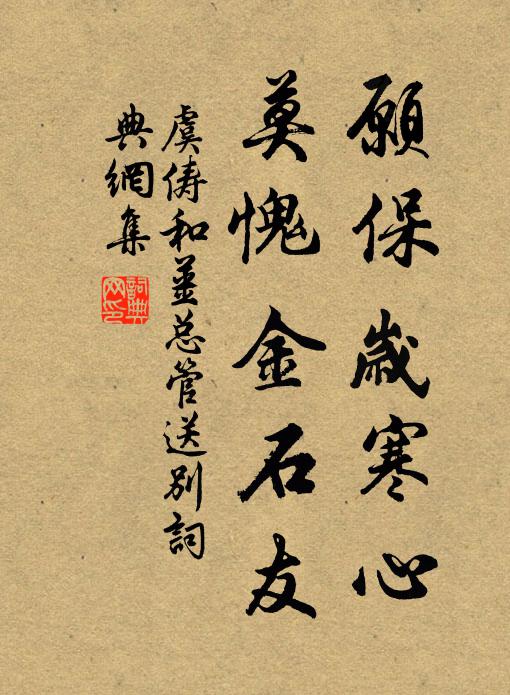 願保歲寒心
莫愧金石友
虞俦和姜总管送别詞
典網集
詞典
网印